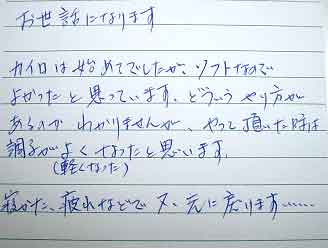 お世話になります
カイロは始めてでしたが、ソフトなので
よかったと思っています、どういうやり方が
あるのかわかりませんが、やって頂いた時は
調子がよくなったと思います。
(軽くなった)
寝かた、疲れなどで又、元に戻ります……